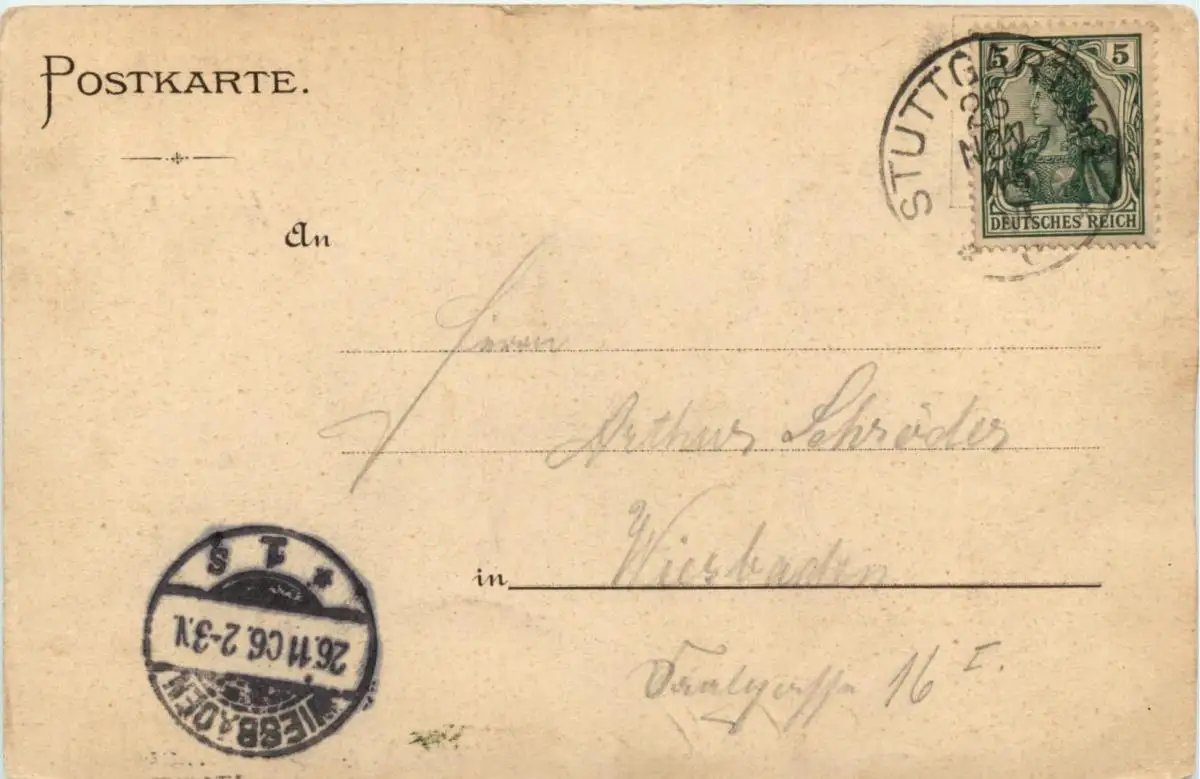 POSTKARTE.
5 5
DEUTSCHES REICH
STUTTGART
25
NOV
An
Herrn
Arthur Schröder
in Wiesbaden
Saalgasse 16 I.
* 1 S
26.11.06. 2-3N.
WIESBADEN